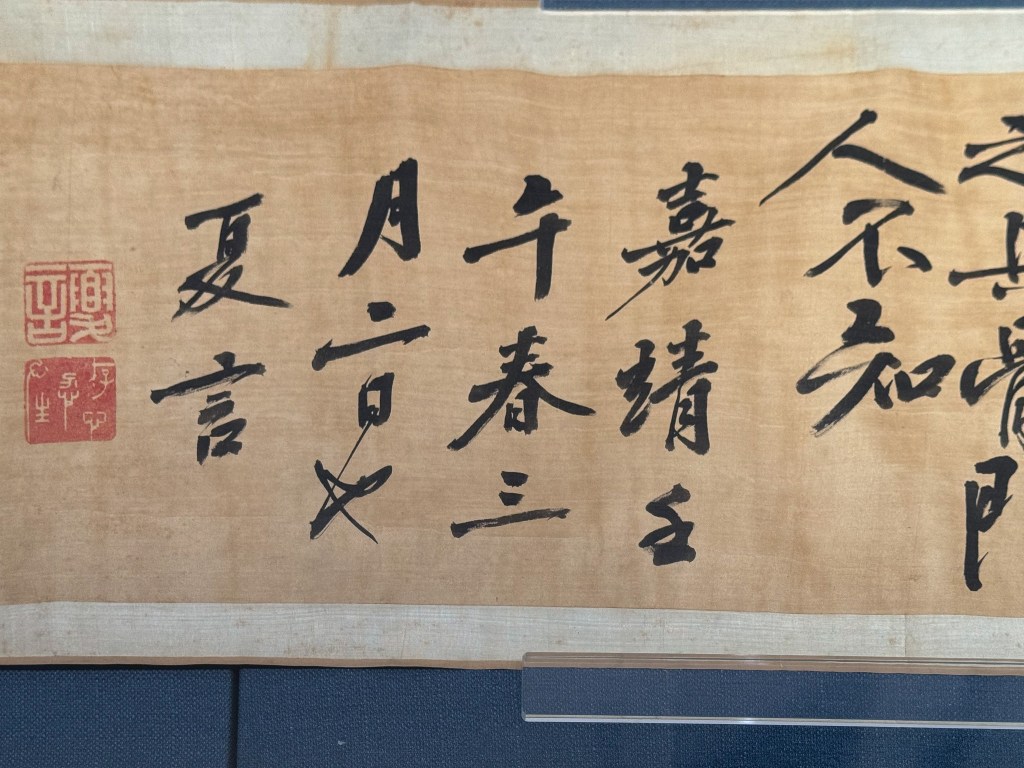 之
人不知
嘉靖壬
午春三
月二日也
夏言